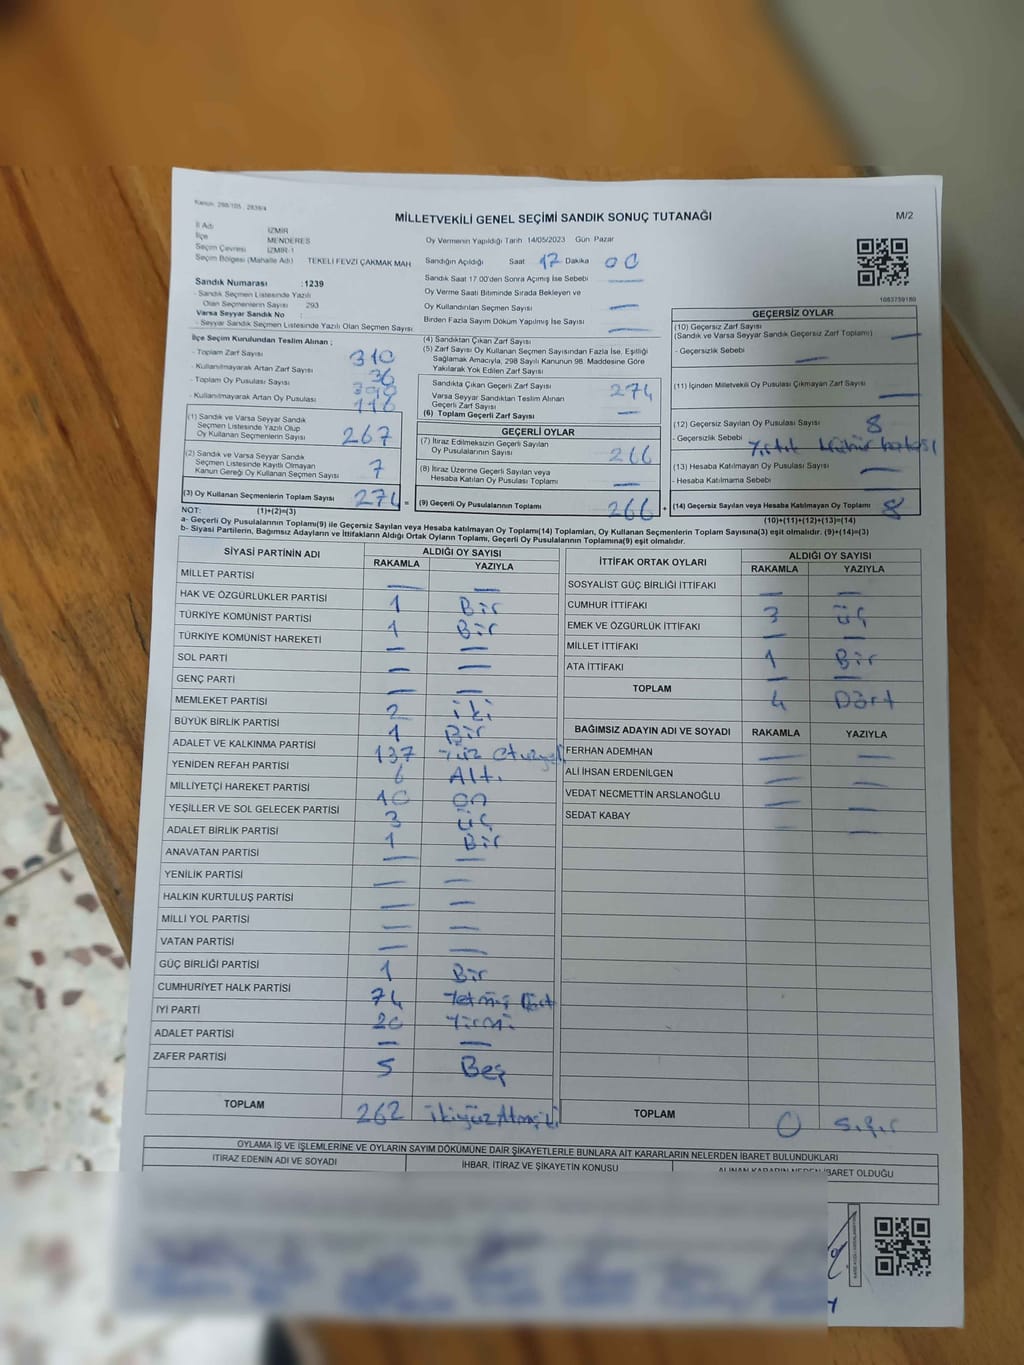 Kanun: 298/105, 2839/4
MİLLETVEKİLİ GENEL SEÇİMİ SANDIK SONUÇ TUTANAĞI
M/2
İl Adı İZMİR
İlçe MENDERES
Seçim Çevresi İZMİR-1
Seçim Bölgesi (Mahalle Adı) TEKELİ FEVZİ ÇAKMAK MAH
Oy Vermenin Yapıldığı Tarih 14/05/2023 Gün Pazar
Sandığın Açıldığı Saat 17 Dakika 00
Sandık Saat 17.00'den Sonra Açımış İse Sebebi —
Oy Verme Saati Bitiminde Sırada Bekleyen ve
Oy Kullandırılan Seçmen Sayısı —
Birden Fazla Sayım Döküm Yapılmış İse Sayısı —
1083759180
Sandık Numarası :1239
- Sandık Seçmen Listesinde Yazılı
Olan Seçmenlerin Sayısı 293
Varsa Seyyar Sandık No :
- Seyyar Sandık Seçmen Listesinde Yazılı Olan Seçmen Sayısı
İlçe Seçim Kurulundan Teslim Alınan ;
- Toplam Zarf Sayısı 310
- Kullanılmayarak Artan Zarf Sayısı 36
- Toplam Oy Pusulası Sayısı
- Kullanılmayarak Artan Oy Pusulası 116
(1) Sandık ve Varsa Seyyar Sandık
Seçmen Listesinde Yazılı Olup
Oy Kullanan Seçmenlerin Sayısı 267
(2) Sandık ve Varsa Seyyar Sandık
Seçmen Listesinde Kayıtlı Olmayan
Kanun Gereği Oy Kullanan Seçmen Sayısı 7
(3) Oy Kullanan Seçmenlerin Toplam Sayısı 274 =
(4) Sandıktan Çıkan Zarf Sayısı
(5) Zarf Sayısı Oy Kullanan Seçmen Sayısından Fazla İse, Eşitliği
Sağlamak Amacıyla, 298 Sayılı Kanunun 98. Maddesine Göre
Yakılarak Yok Edilen Zarf Sayısı
Sandıkta Çıkan Geçerli Zarf Sayısı 274
Varsa Seyyar Sandıktan Teslim Alınan
Geçerli Zarf Sayısı —
(6) Toplam Geçerli Zarf Sayısı
GEÇERLİ OYLAR
(7) İtiraz Edilmeksizin Geçerli Sayılan
Oy Pusulalarının Sayısı 266
(8) İtiraz Üzerine Geçerli Sayılan veya
Hesaba Katılan Oy Pusulası Toplamı —
(9) Geçerli Oy Pusulalarının Toplamı 266 +
GEÇERSİZ OYLAR
(10) Geçersiz Zarf Sayısı
(Sandık ve Varsa Seyyar Sandık Geçersiz Zarf Toplamı) —
- Geçersizlik Sebebi —
(11) İçinden Milletvekili Oy Pusulası Çıkmayan Zarf Sayısı —
(12) Geçersiz Sayılan Oy Pusulası Sayısı 8
- Geçersizlik Sebebi Yırtık Mühür hatası
(13) Hesaba Katılmayan Oy Pusulası Sayısı —
- Hesaba Katılmama Sebebi —
(14) Geçersiz Sayılan veya Hesaba Katılmayan Oy Toplamı 8
NOT: (1)+(2)=(3) (10)+(11)+(12)+(13)=(14)
a- Geçerli Oy Pusulalarının Toplamı(9) ile Geçersiz Sayılan veya Hesaba katılmayan Oy Toplamı(14) Toplamları, Oy Kullanan Seçmenlerin Toplam Sayısına(3) eşit olmalıdır. (9)+(14)=(3)
b- Siyasi Partilerin, Bağımsız Adayların ve İttifakların Aldığı Ortak Oyların Toplamı, Geçerli Oy Pusulalarının Toplamına(9) eşit olmalıdır.
SİYASİ PARTİNİN ADI ALDIĞI OY SAYISI
RAKAMLA YAZIYLA
MİLLET PARTİSİ — —
HAK VE ÖZGÜRLÜKLER PARTİSİ 1 Bir
TÜRKİYE KOMÜNİST PARTİSİ 1 Bir
TÜRKİYE KOMÜNİST HAREKETİ — —
SOL PARTİ — —
GENÇ PARTİ — —
MEMLEKET PARTİSİ 2 iki
BÜYÜK BİRLİK PARTİSİ 1 Bir
ADALET VE KALKINMA PARTİSİ 137 Yüz Otuzyedi
YENİDEN REFAH PARTİSİ 6 Altı
MİLLİYETÇİ HAREKET PARTİSİ 10 on
YEŞİLLER VE SOL GELECEK PARTİSİ 3 üç
ADALET BİRLİK PARTİSİ 1 Bir
ANAVATAN PARTİSİ — —
YENİLİK PARTİSİ — —
HALKIN KURTULUŞ PARTİSİ — —
MİLLİ YOL PARTİSİ — —
VATAN PARTİSİ — —
GÜÇ BİRLİĞİ PARTİSİ 1 Bir
CUMHURİYET HALK PARTİSİ 74 Yetmiş Dört
İYİ PARTİ 20 Yirmi
ADALET PARTİSİ — —
ZAFER PARTİSİ 5 Beş
TOPLAM 262 ikiyüzAtmışiki
İTTİFAK ORTAK OYLARI ALDIĞI OY SAYISI
RAKAMLA YAZIYLA
SOSYALİST GÜÇ BİRLİĞİ İTTİFAKI — —
CUMHUR İTTİFAKI 3 üç
EMEK VE ÖZGÜRLÜK İTTİFAKI — —
MİLLET İTTİFAKI 1 Bir
ATA İTTİFAKI — —
TOPLAM 4 Dört
BAĞIMSIZ ADAYIN ADI VE SOYADI RAKAMLA YAZIYLA
FERHAN ADEMHAN — —
ALİ İHSAN ERDENİLGEN — —
VEDAT NECMETTİN ARSLANOĞLU — —
SEDAT KABAY — —
TOPLAM 0 Sıfır
OYLAMA İŞ VE İŞLEMLERİNE VE OYLARIN SAYIM DÖKÜMÜNE DAİR ŞİKAYETLERLE BUNLARA AİT KARARLARIN NELERDEN İBARET BULUNDUKLARI
İTİRAZ EDENİN ADI VE SOYADI İHBAR, İTİRAZ VE ŞİKAYETİN KONUSU ALINAN KARARIN NEDEN İBARET OLDUĞU